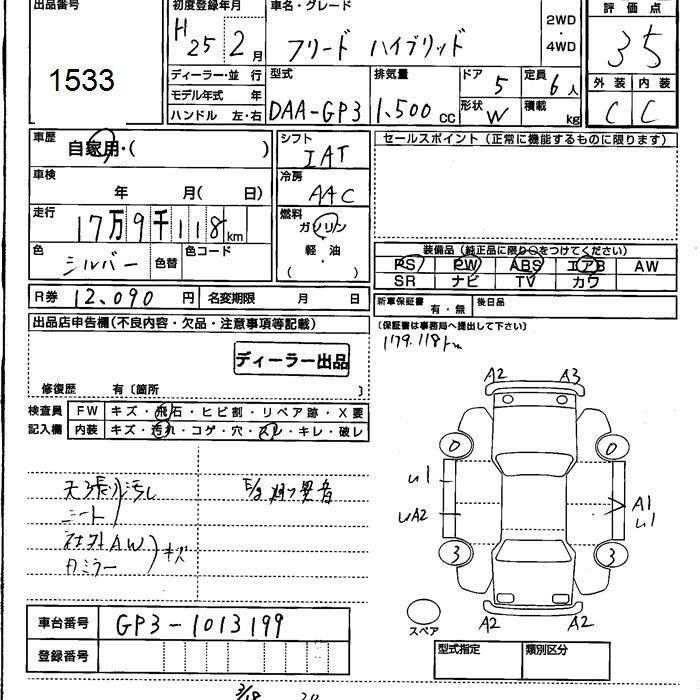 出品番号 初度登録年月 車名・グレード 評価点
1533 H 25 2月 フリード ハイブリッド 2WD・4WD 35
ディーラー・並 行 型式 排気量 ドア 5 定員 6人 外装 内装
モデル年式 年
ハンドル 左・右 DAA-GP3 1.500cc 形状 W 積載 kg C C
車歴 自家用・( ) シフト IAT セールスポイント(正常に機能するものに限ります)
車検 年 月(日) 冷房 AAC
走行 17万9千118km 燃料 ガソリン
軽・油
( )
色 シルバー 色替 色コード
装備品(純正品に限り○をつけてください)
PS PW ABS エアB AW
SR ナビ TV カワ
R券 12,090円 名変期限 月 日 新車保証書 有・無 後日品
出品店申告欄(不良内容・欠品・注意事項等記載) (保証書は事務局へ提出して下さい)
179.118km
ディーラー出品
修復歴 有〔箇所 〕
検査員 FW キズ・飛石・ヒビ割・リペア跡・X要
記入欄 内装 キズ・汚れ・コゲ・穴・スレ・キレ・破レ
A2 A3
0 0
天張り汚レ 異音
シート
社外AW キズ
カミラー
A1
3 3
A2 A2
スペア
車台番号 GP3-1013199
登録番号
型式指定 類別区分
3/18